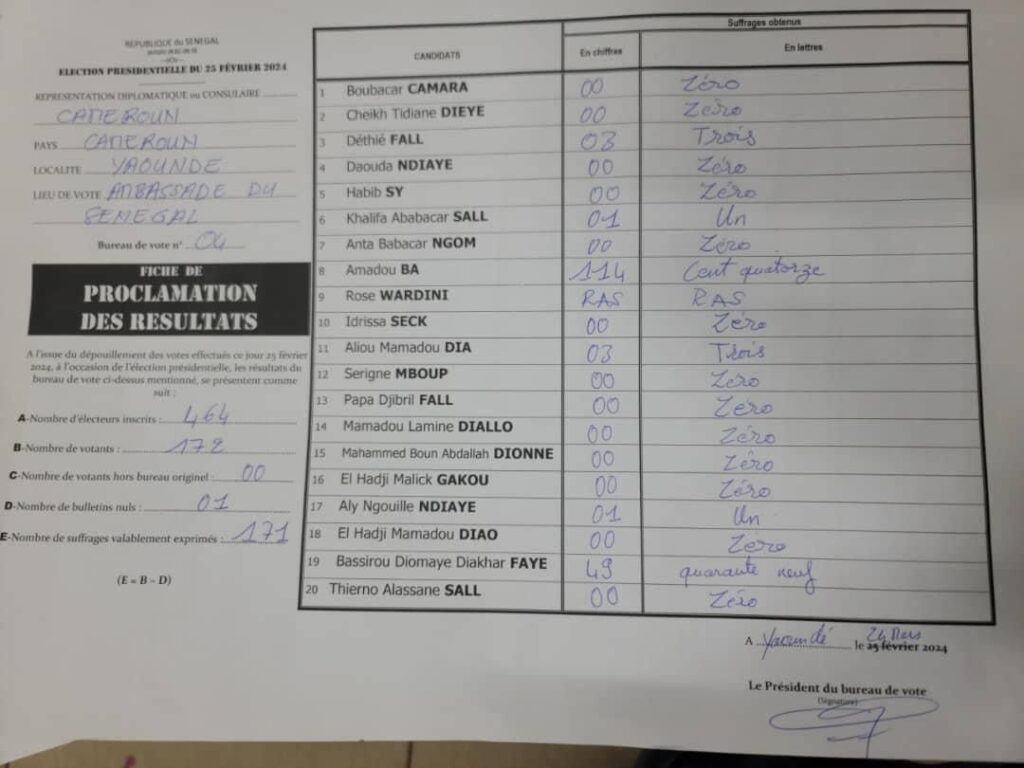 REPUBLIQUE du SENEGAL
ELECTION PRESIDENTIELLE DU 25 FÉVRIER 2024
REPRESENTATION DIPLOMATIQUE ou CONSULAIRE
CAMEROUN
PAYS CAMEROUN
LOCALITE YAOUNDE
LIEU DE VOTE AMBASSADE DU
SENEGAL
Bureau de vote n° 04
FICHE DE
PROCLAMATION
DES RESULTATS
A l'issue du dépouillement des votes effectués ce jour 25 février
2024, à l'occasion de l'élection présidentielle, les résultats du
bureau de vote ci-dessus mentionné, se présentent comme
suit :
A-Nombre d'électeurs inscrits : 464
B-Nombre de votants : 172
C-Nombre de votants hors bureau originel : 00
D-Nombre de bulletins nuls : 01
E-Nombre de suffrages valablement exprimés : 171
(E = B – D)
Suffrages obtenus
CANDIDATS En chiffres En lettres
1 Boubacar CAMARA 00 Zéro
2 Cheikh Tidiane DIEYE 00 Zéro
3 Déthié FALL 03 Trois
4 Daouda NDIAYE 00 Zéro
5 Habib SY 00 Zéro
6 Khalifa Ababacar SALL 01 Un
7 Anta Babacar NGOM 00 Zéro
8 Amadou BA 114 Cent quatorze
9 Rose WARDINI RAS RAS
10 Idrissa SECK 00 Zéro
11 Aliou Mamadou DIA 03 Trois
12 Serigne MBOUP 00 Zéro
13 Papa Djibril FALL 00 Zéro
14 Mamadou Lamine DIALLO 00 Zéro
15 Mahammed Boun Abdallah DIONNE 00 Zéro
16 El Hadji Malick GAKOU 00 Zéro
17 Aly Ngouille NDIAYE 01 Un
18 El Hadji Mamadou DIAO 00 Zéro
19 Bassirou Diomaye Diakhar FAYE 49 quarante neuf
20 Thierno Alassane SALL 00 Zéro
24 Mars
A Yaoundé le 25 février 2024
Le Président du bureau de vote
(Signature)